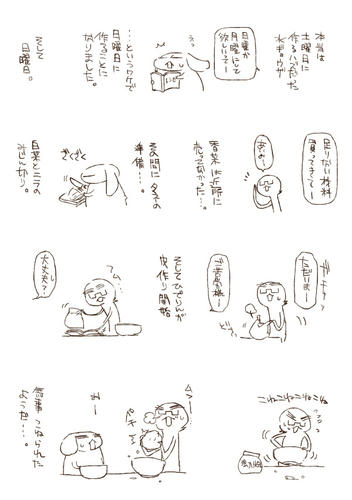 本当は
土曜日に
作るハズだった
水ギョウザ
日菜が
月曜にして
欲しいてー
えっ
…というワケで
日曜日に
作ることに
なりました。
そして
日曜日。
足りない材料
買ってきてー
あいよー
香菜は近所に
売ってなかった…。
その間に
準備…。
ざくざく
白菜とニラの
みじん切り。
ただいまー
ご苦労様ー
そしてひでりんが
皮作り開始
大丈夫？
こねこねこねこね
パキン
おー
無事こねられた
ようだ…。